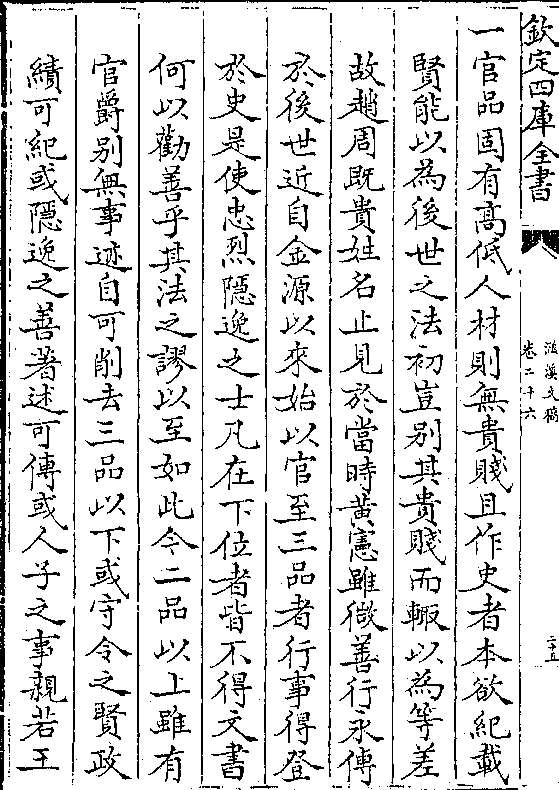 欽定四庫全書
滋溪文稿
卷二十六
二十五
一官品固有高低人材則無貴賤且作史者本欲紀載
賢能以為後世之法初豈別其貴賤而輙以為等差
故趙周既貴姓名止見於當時黃憲雖微善行永傳
於後世近自金源以來始以官至三品者行事得登
於史是使忠烈隱逸之士凡在下位者皆不得文書
何以勸善乎其法之謬以至如此今二品以上雖有
官爵别無事迹自可削去三品以下或守令之賢政
績可紀或隱逸之善著述可傳或人子之事親若王